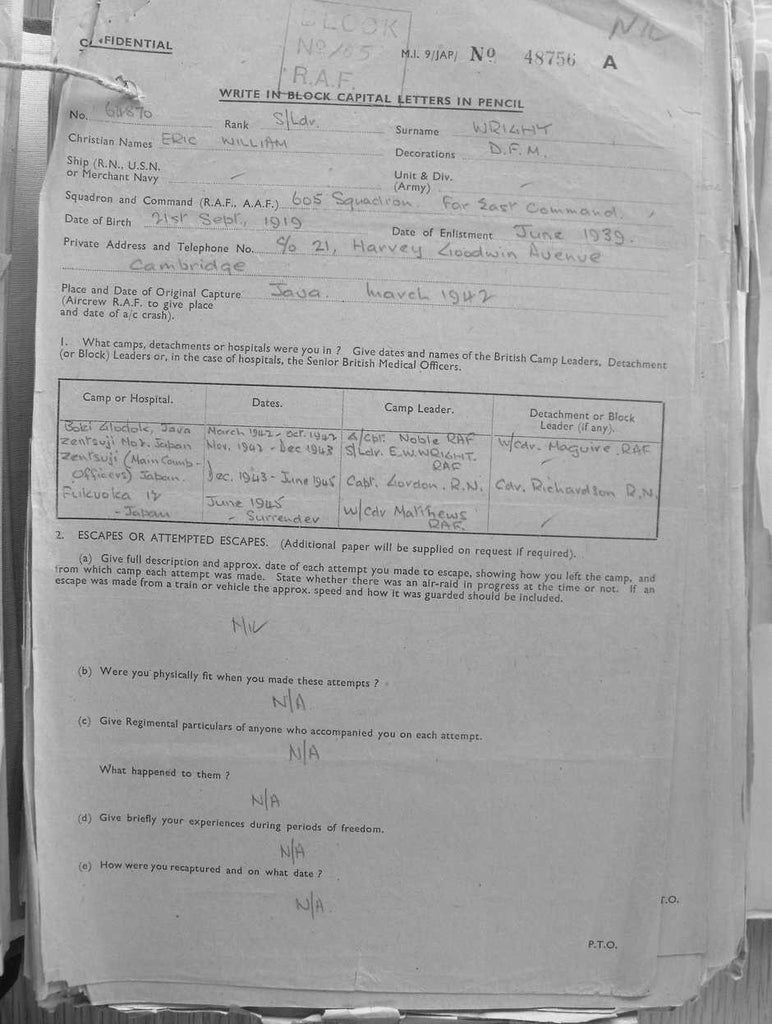 NIL
BLOCK
No 105
R.A.F.
CONFIDENTIAL
M.I. 9/JAP/ No 48756 A
WRITE IN BLOCK CAPITAL LETTERS IN PENCIL
No. 64870 Rank S/Ldr. Surname WRIGHT
Christian Names ERIC WILLIAM Decorations D.F.M.
Ship (R.N., U.S.N. or Merchant Navy — Unit & Div. (Army) —
Squadron and Command (R.A.F., A.A.F.) 605 Squadron. Far East Command.
Date of Birth 21st Sept., 1919 Date of Enlistment June 1939.
Private Address and Telephone No. c/o 21, Harvey Goodwin Avenue
Cambridge
Place and Date of Original Capture Java. March 1942
(Aircrew R.A.F. to give place
and date of a/c crash).
1. What camps, detachments or hospitals were you in ? Give dates and names of the British Camp Leaders, Detachment
(or Block) Leaders or, in the case of hospitals, the Senior British Medical Officers.
Camp or Hospital. Dates. Camp Leader. Detachment or Block Leader (if any).
Boei Glodok, Java March 1942 - Oct. 1942 G/Cpt. Noble RAF W/Cdr. Maguire. RAF
Zentsuji Japan Nov. 1942 - Dec 1943 S/Ldr. E.W. WRIGHT. RAF —
Zentsuji (Main Camp - Officers) Japan. Dec. 1943 - June 1945 Capt. Gordon. R.N. Cdr. Richardson R.N.
Fukuoka 12 - Japan June 1945 - Surrender W/Cdr Matthews RAF. —
2. ESCAPES OR ATTEMPTED ESCAPES. (Additional paper will be supplied on request if required).
(a) Give full description and approx. date of each attempt you made to escape, showing how you left the camp, and
from which camp each attempt was made. State whether there was an air-raid in progress at the time or not. If an
escape was made from a train or vehicle the approx. speed and how it was guarded should be included.
NIL
(b) Were you physically fit when you made these attempts ?
N/A
(c) Give Regimental particulars of anyone who accompanied you on each attempt.
N/A
What happened to them ?
N/A
(d) Give briefly your experiences during periods of freedom.
N/A
(e) How were you recaptured and on what date ?
N/A
T.O.
P.T.O.